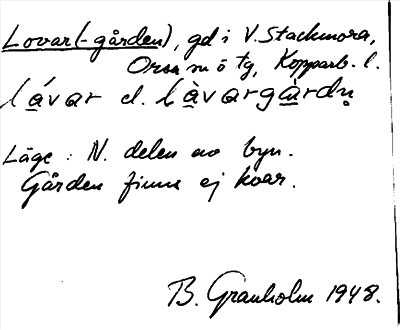 Lovar(-gården), gd i V. Stackmora,
Orsa sn ö tg, Kopparb. l.
lávar el. làvargàrdṇ
Läge: N. delen av byn.
Gården finns ej kvar.
B. Granholm 1948.